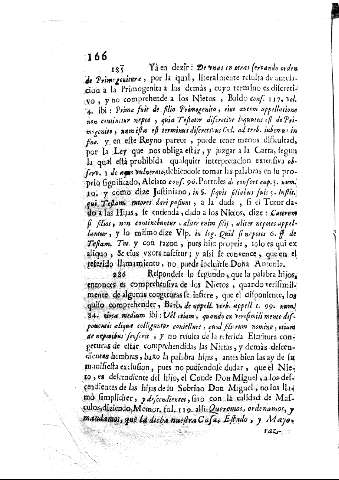 166
185 Yà en dezir: De unas en otras servando orden
de Primogenitura, por la qual, literalmente resulta de
cion a la Primogenita a las demàs, cuyo termino es discreti-
vo, y no comprehende a los Nietos, Boldo conf. 117. vol.
4. ibi: Primo fuit de filio Primogenito, eius autem appellatione
non continetur nepos, quia Testator discretivè loquutus est de Pri-
mogenito, nam ista est terminus discretivus
fin. y en este Reyno parece, puede tener menos dificultad,
por la Ley que nos obliga estàr, y juzgar à la Carta, segun
la qual està prohibida qualquier interpretacion extensiva
3. de debiendose tomar las palabras en su pro-
prio significado, Alciato conf. 90. Portolès de consort cap. 3. num.
10. y como dize Justiniano, in §.
qui Testam. tutores dari possunt, à la duda, si el Tutor da-
do à las Hijas, se entienda, dado a los Nietos, dize: Cæterum
si filios, non continebuntur, aliter enim filij, aliter nepotes appel-
lantur, y lo mismo dize Vlp. in leg. Quid si nepotes 6. ff. de
Testam. Tut. y con razon, pues hijo proprie, solo es qui ex
aliquo, & eius vxore nascitur; y assi se convence, que en el
referido llamamiento, no puede incluirse Doña Antonia.
186 Respondese lo segundo, que la palabra hijos,
entonces es comprehensiva de los Nietos, quando verisimil-
mente de algunas congeturas se infiere, que el disponente, los
quiso comprehender, Barb. de appell. verb. appell. 1. 90. num.
84. circa medium ibi: Vel etiam, quando ex verisimili mente dis-
ponentis aliquo colligatur constiterit, quod filiorum nomine, etiam
de nepotibus senserit, y no resulta de la referida Escritura con-
geturas de estar comprehendidas las Nietas, y demàs descen-
dientes hembras, baxo la palabra hijas, antes bien las ay de su
manifiesta exclusion, pues no pudiendose dudar, que el Nie-
to, es descendiente del hijo, el Conde Don Miguel, a los des-
cendientes de las hijas de su Sobrino Don Miguel, no los lla-
mò simpliciter, y descendientes, sino con la calidad de Mas-
culos, diziendo, Memor. fol. 119. alli: Queremos, ordenamos, y
mandamos, que la dicha nuestra Casa, Estado, y Mayo-
raz-